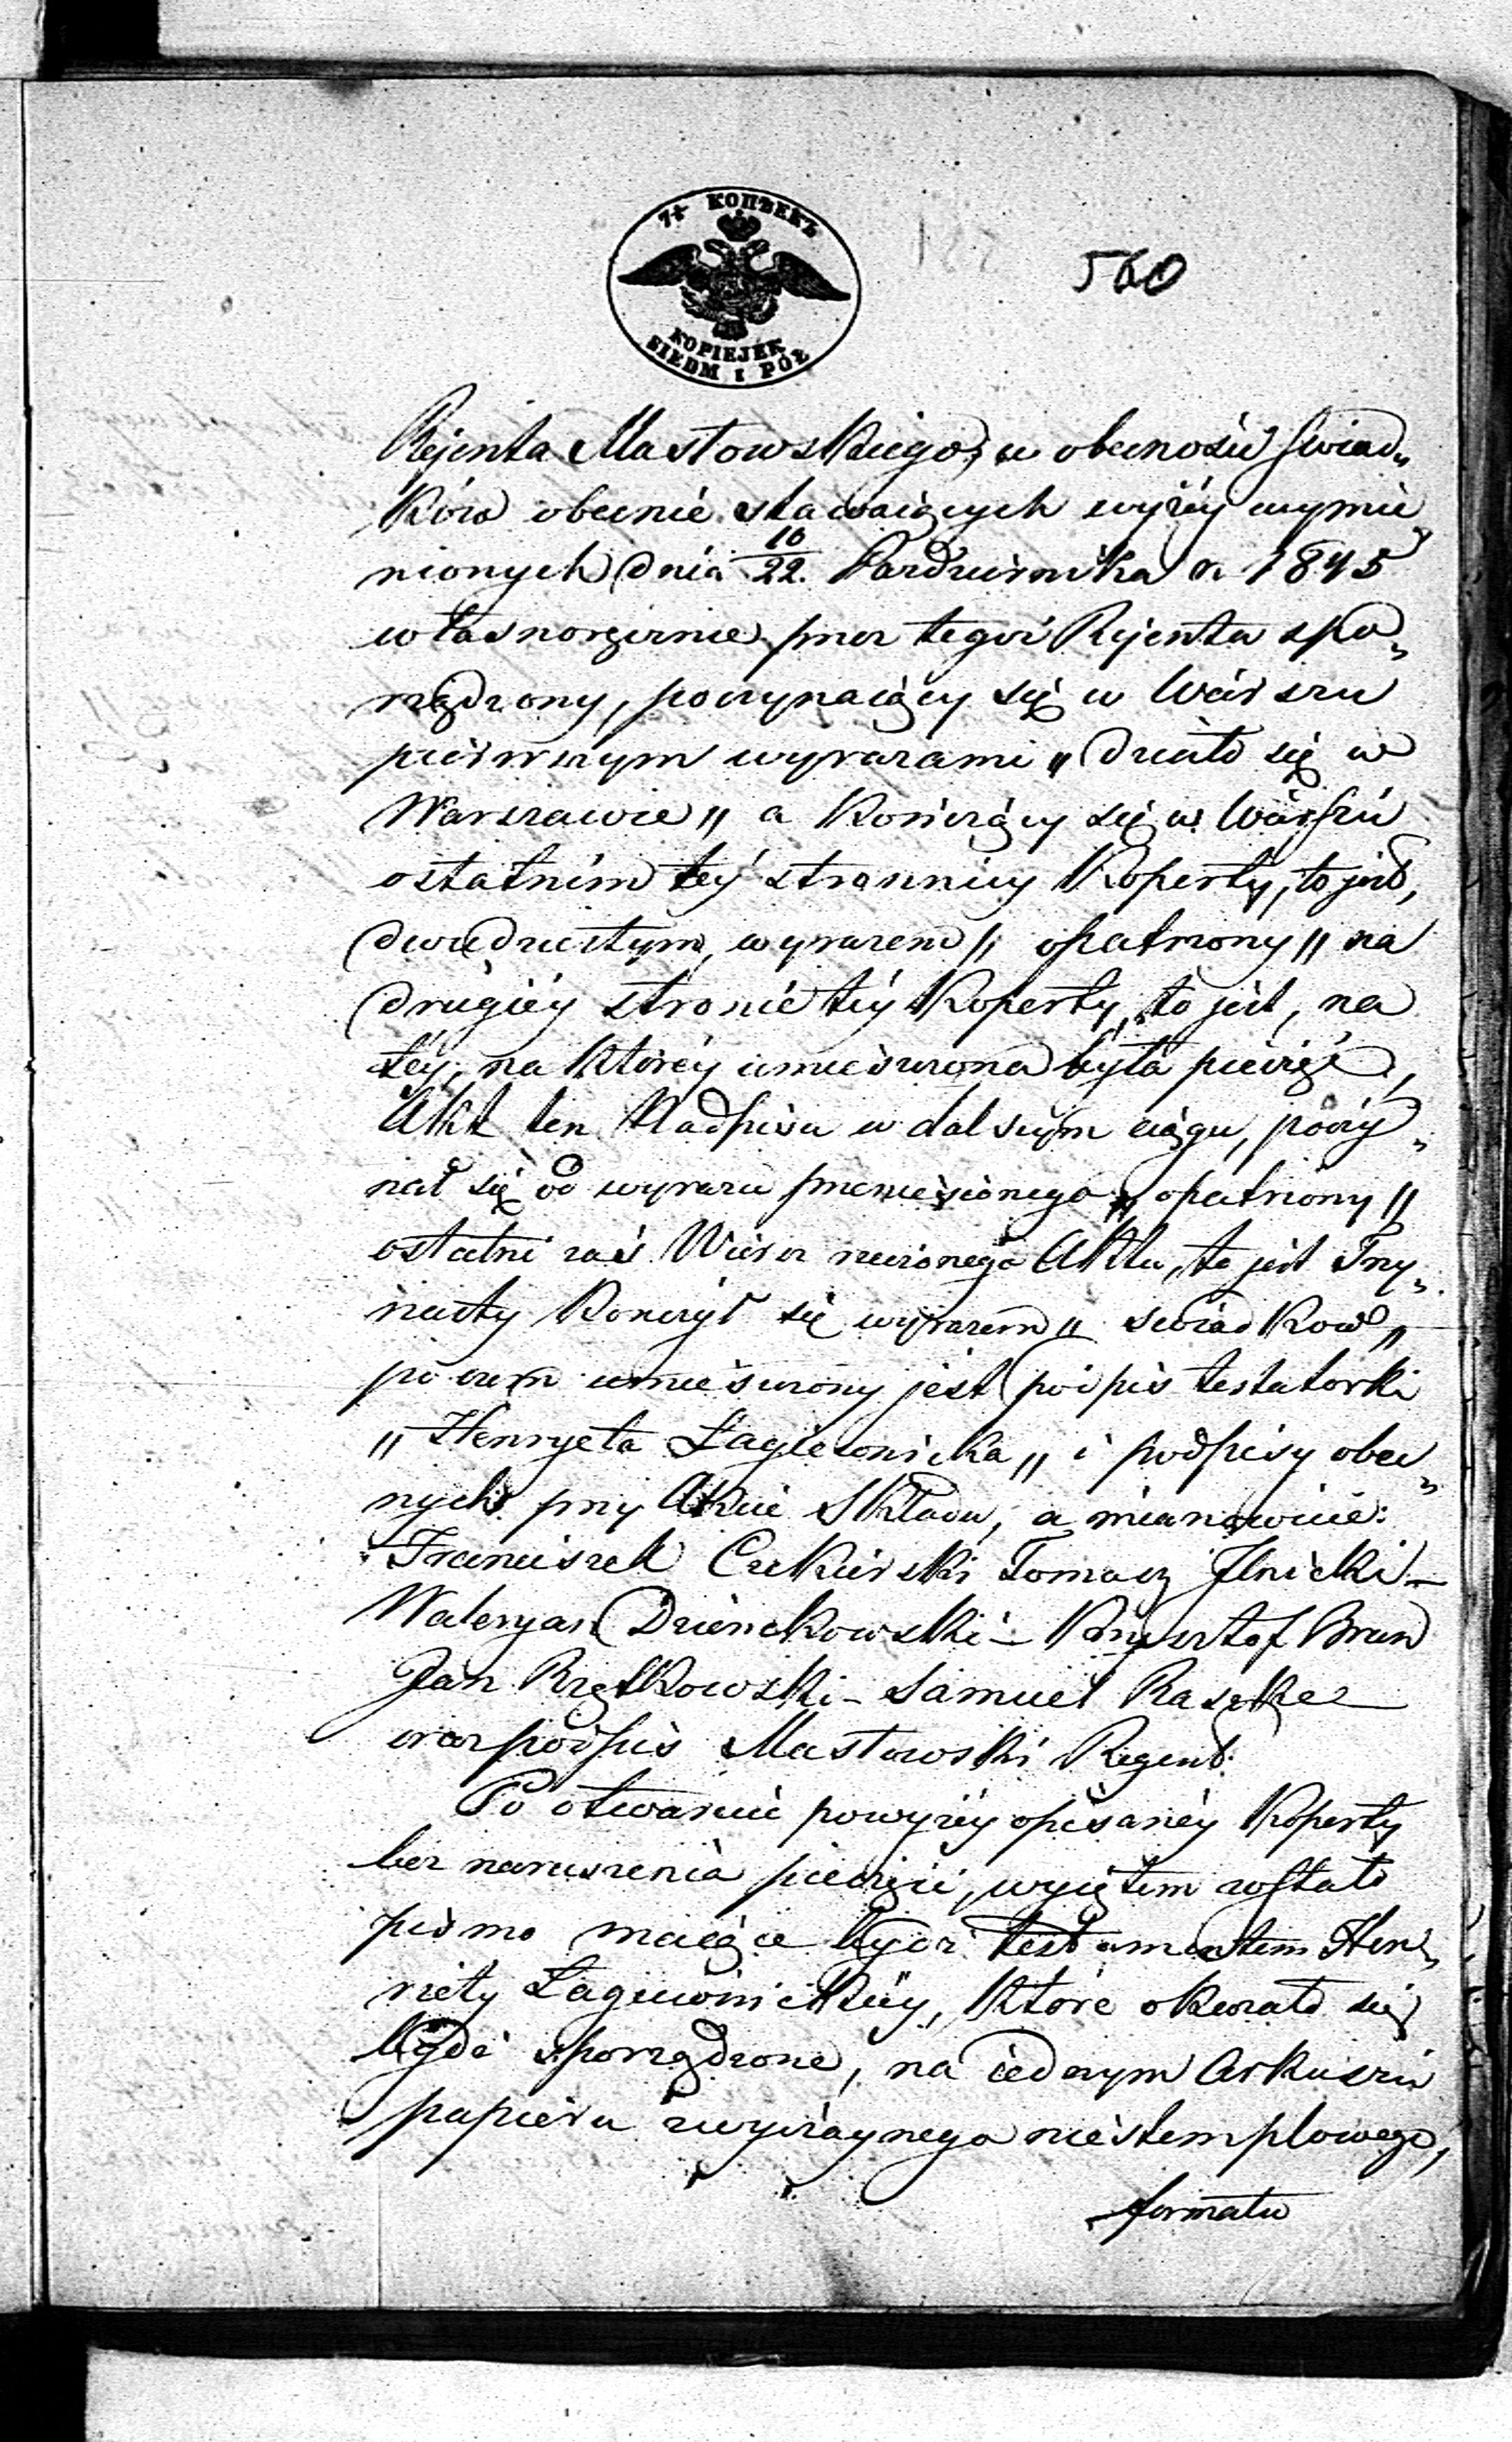 7½ КОПѢЕКЪ
KOPIEJEK
SIEDM I PÓŁ
560
Rejenta Masłowskiego, w obecności Swiad„
ków obecnie stawaiących wyżéy wymie„
nionych dnia 10/22. Pazdziernika r. 1845
własnoręcznie przez tegoż Rejenta spo„
rządzony, poczynaiący się w Wierszu
pierwszym wyrazami „ działo się w
Warszawie „ a kończący się w Wierszu
ostatnim téy stronnicy Koperty, to jest,
dwudziestym, wyrazem „ opatrzony „ na
drugiéy stronie téy Koperty, to jest, na
téy, na któréy umieszczona była pieczęć,
Akt ten Nadpisu w dalszym ciągu, poczy„
nał się od wyrazu przeniesionego „ opatrzony „
ostatni zaś Wiersz rzeczonego Aktu, to jest Trzy„
nasty kończył się wyrazem „ swiadków „
po czem umieszczony jest podpis testatorki
„ Henryeta Łagiewnicka „ i podpisy obec„
nych przy Akcie Składu, a mianowicie:
Franciszek Cukierski Tomasz Ilnicki –
Waleryan Dzienckowski – Krzysztof Brun
Jan Rzętkowski – Samuel Raschke –
oraz podpis Masłowski Regent.
Po otwarciu powyżéy opisanéy Koperty
bez naruszenia pieczęci, wyiętem zostało
pismo maiące być testamentem Hen„
riety Łagiewnickiéy, które okazało się
bydź sporządzone, na iednym Arkuszu
papieru zwyczaynego niestemplowego,
formatu